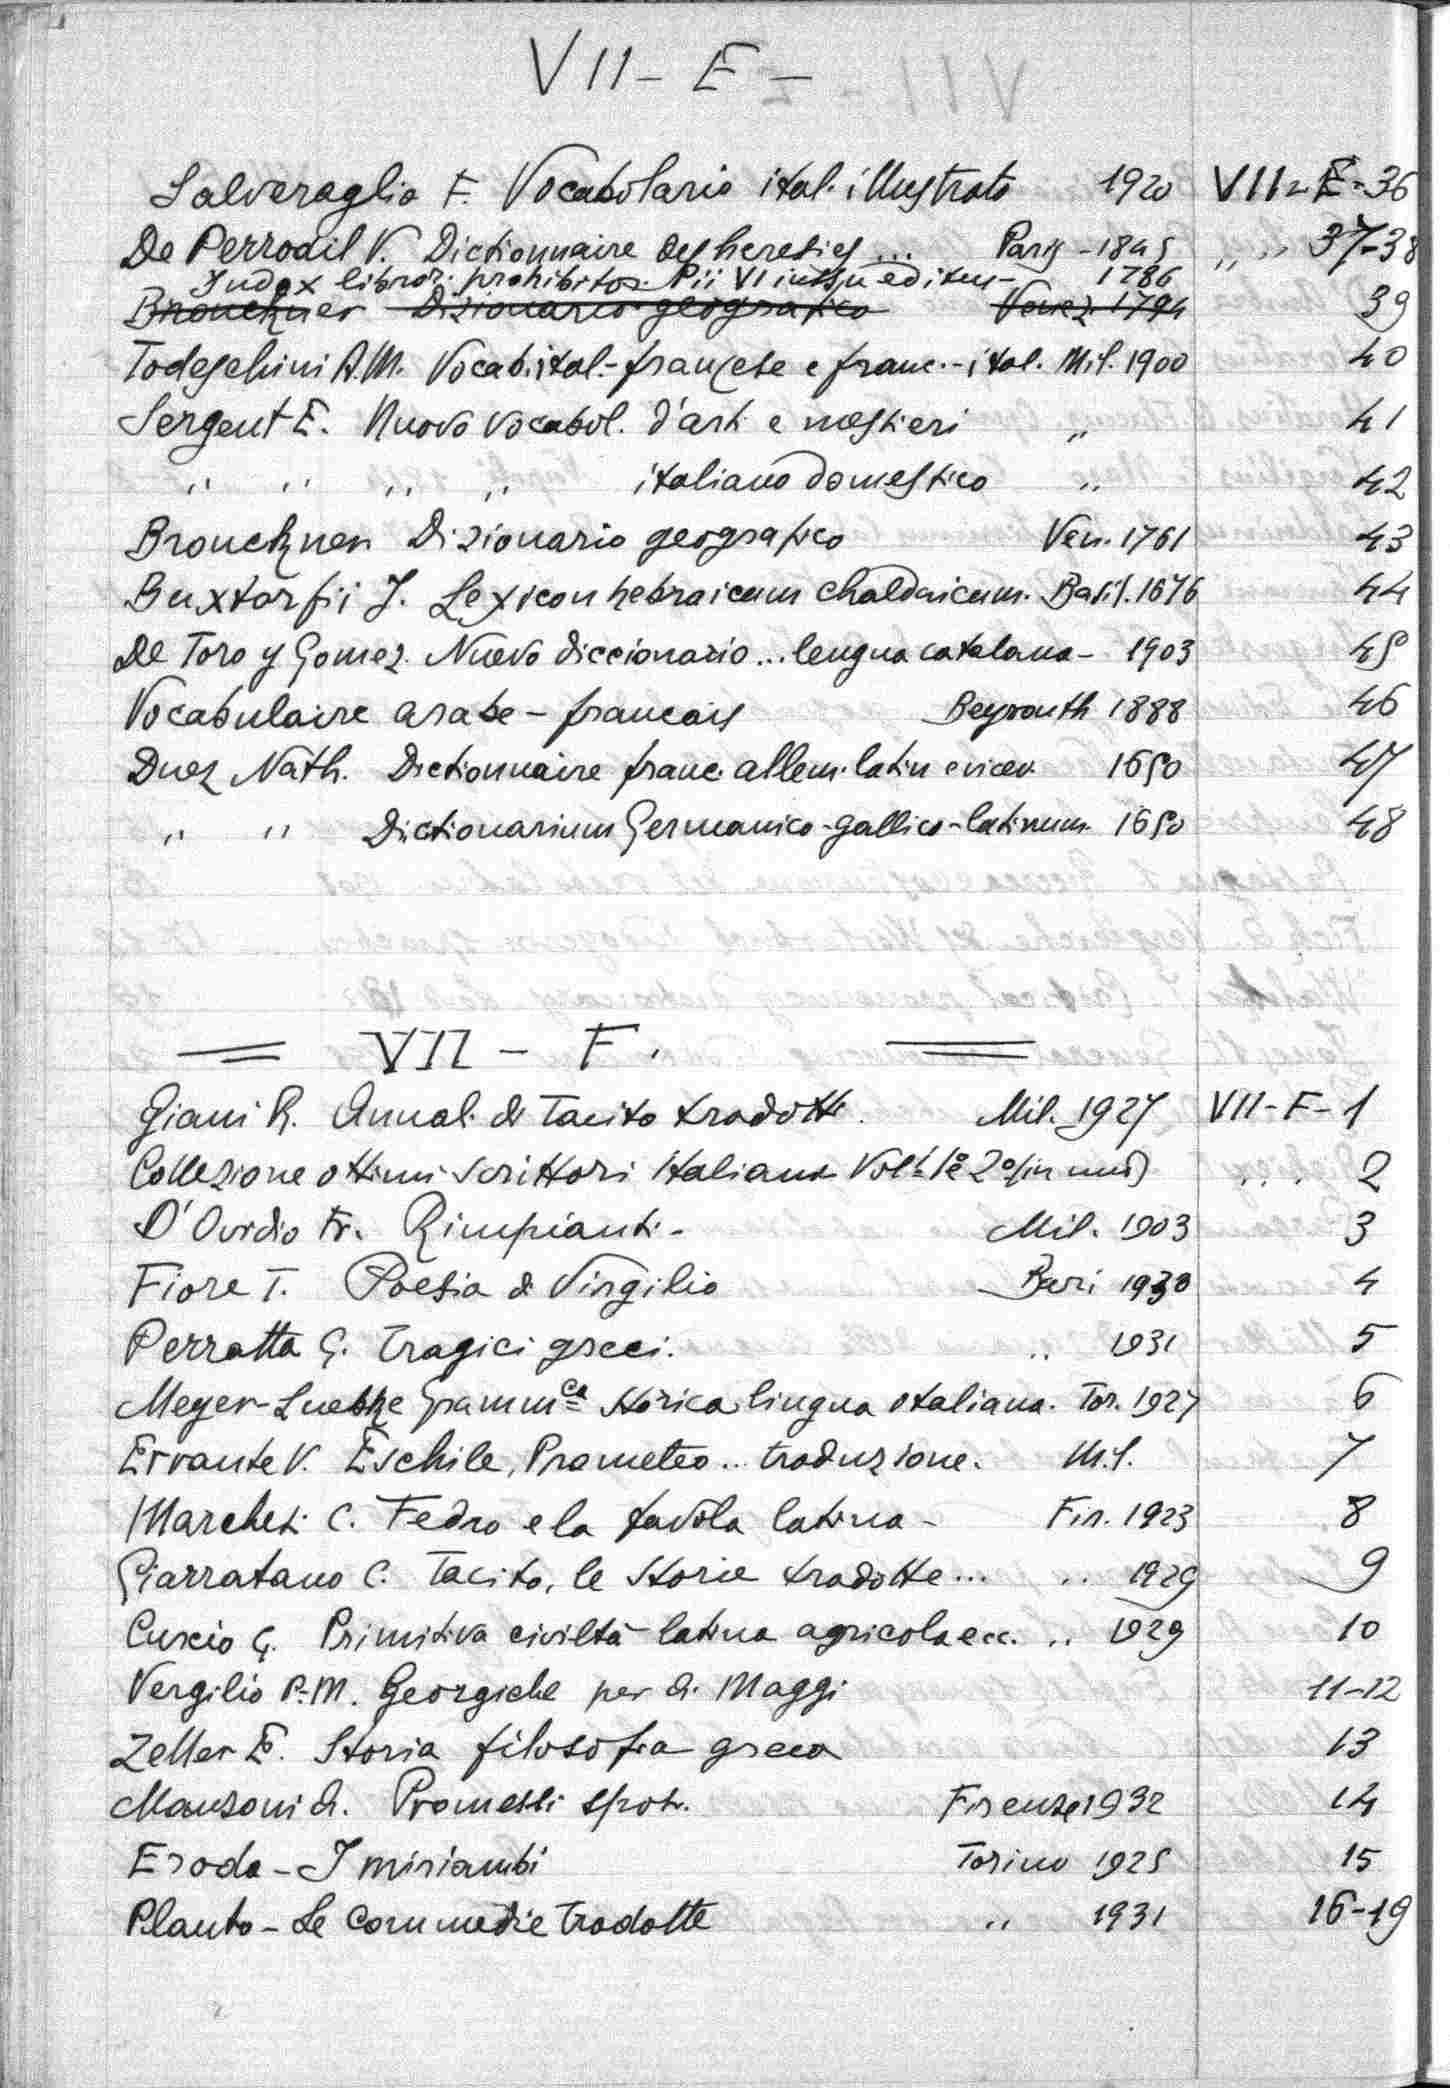 VII - E -
Salveraglio F. Vocabolario ital. illustrato 1920 VII - E - 36
De Perrodil V. Dictionnaire des heresies ... Paris - 1845 " " 37-38
Index libror. prohibitor. Pii VI iussu editus - 1786
Brouckner Dizionario geografico Venez. 1794 39
Todeschini A.M. Vocab. ital.-francese e franc.-ital. Mil. 1900 40
Sergent E. Nuovo vocabol. d'arti e mestieri " 41
" " " " italiano domestico " 42
Brouckner Dizionario geografico Ven. 1761 43
Buxtorfii J. Lexicon hebraicum chaldaicum. Basil. 1676 44
De Toro y Gomez. Nuevo diccionario ... lengua catalana - 1903 45
Vocabulaire arabe - francais Beyrouth 1888 46
Duez Nath. Dictionnaire franc. allem. latin e vicev. 1650 47
" " Dictionarium Germanico-gallico-latinum. 1650 48
VII - F.
Giani R. Annali di Tacito tradotti. Mil. 1927 VII - F - 1
Collezione ottimi scrittori italiani Vol. 1° e 2° (in uno) " " 2
D'Ovidio Fr. Rimpianti - Mil. 1903 3
Fiore T. Poesia di Virgilio Bari 1930 4
Perratta G. Tragici greci. " 1931 5
Meyer-Luebke Gramm.ca storica lingua italiana. Tor. 1927 6
Errante V. Eschile, Prometeo .. traduzione. Mil. 7
Marchesi C. Fedro e la favola latina - Fir. 1923 8
Giarratano C. Tacito, le Storie tradotte ... " 1929 9
Curcio G. Primitiva civiltà latina agricola ecc. " 1929 10
Vergilio P.M. Georgiche per A. Maggi 11-12
Zeller E. Storia filosofia greca 13
Manzoni A. Promessi sposi. Firenze 1932 14
Eroda - I mimiambi Torino 1925 15
Plauto - Le commedie tradotte " 1931 16-19